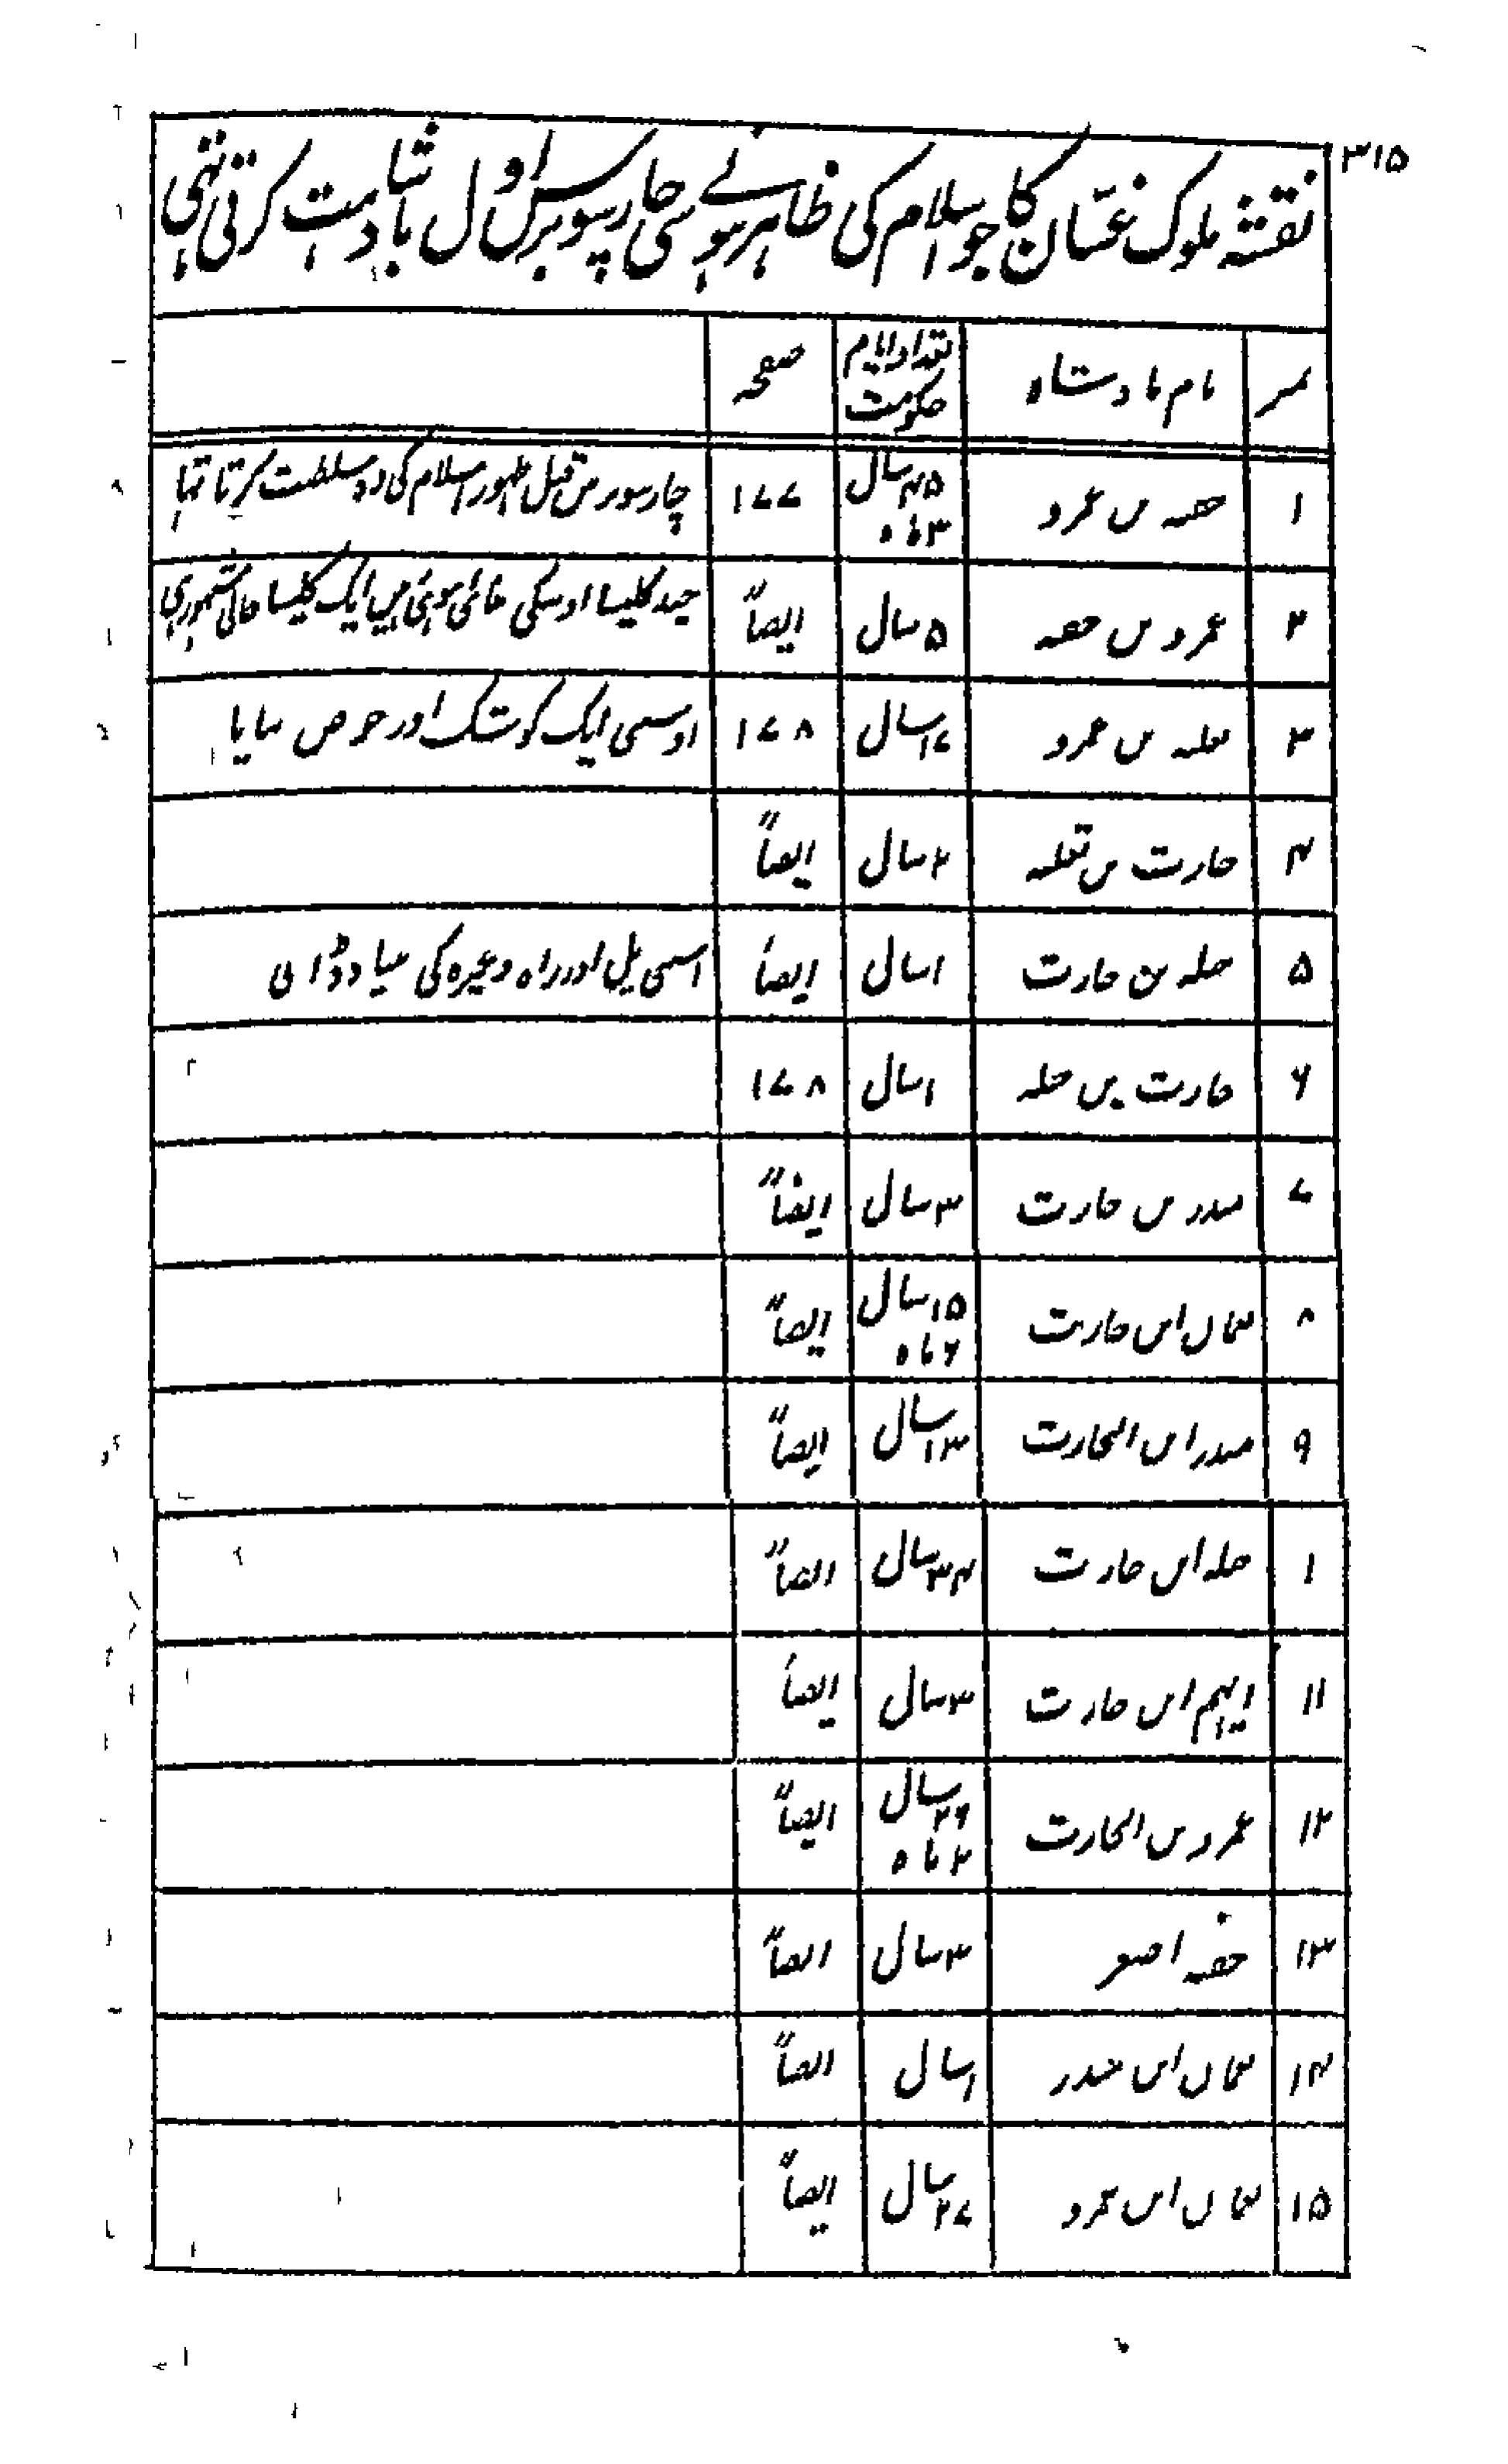 ۳۱۵
نقشہ ملوک غسّان کا جو اسلام کی ظاہر ہونے سی چار سو برس اول بادشاہت کرتی تہی
نمبر نام بادشاہ تعداد ایام حکومت صفحہ
۱ جفنہ بن عمرو ۴۵ سال ۳ ماہ ۱۷۷ چار سو برس قبل ظہور اسلام کی وہ سلطنت کرتا تہا
۲ عمرو بن جفنہ ۵ سال ایضاً چند کلیسا اوسکی بنائی ہوئی ہیں ایک کلیسا حالی مشہور ہی
۳ ثعلبہ بن عمرو ۱۷ سال ۱۷۸ اوسمی ایک کوشک اور حوض بنایا
۴ حارث بن ثعلبہ ۲ سال ایضاً
۵ جبلہ بن حارث ۱ سال ایضاً اسمی پل اور راہ وغیرہ کی بنیاد ڈالی
۶ حارث بن جبلہ ۱ سال ۱۷۸
۷ منذر بن حارث ۳ سال ایضاً
۸ نعمان ابن حارث ۱۵ سال ۶ ماہ ایضاً
۹ منذر ابن الحارث ۱۳ سال ایضاً
۱ جبلہ ابن حارث ۳۴ سال ایضاً
۱۱ ایہم ابن حارث ۳ سال ایضاً
۱۲ عمرو بن الحارث ۲۶ سال ۲ ماہ ایضاً
۱۳ جفنہ اصغر ۳ سال ایضاً
۱۴ نعمان ابن منذر ۱ سال ایضاً
۱۵ نعمان ابن عمرو ۲۷ سال ایضاً